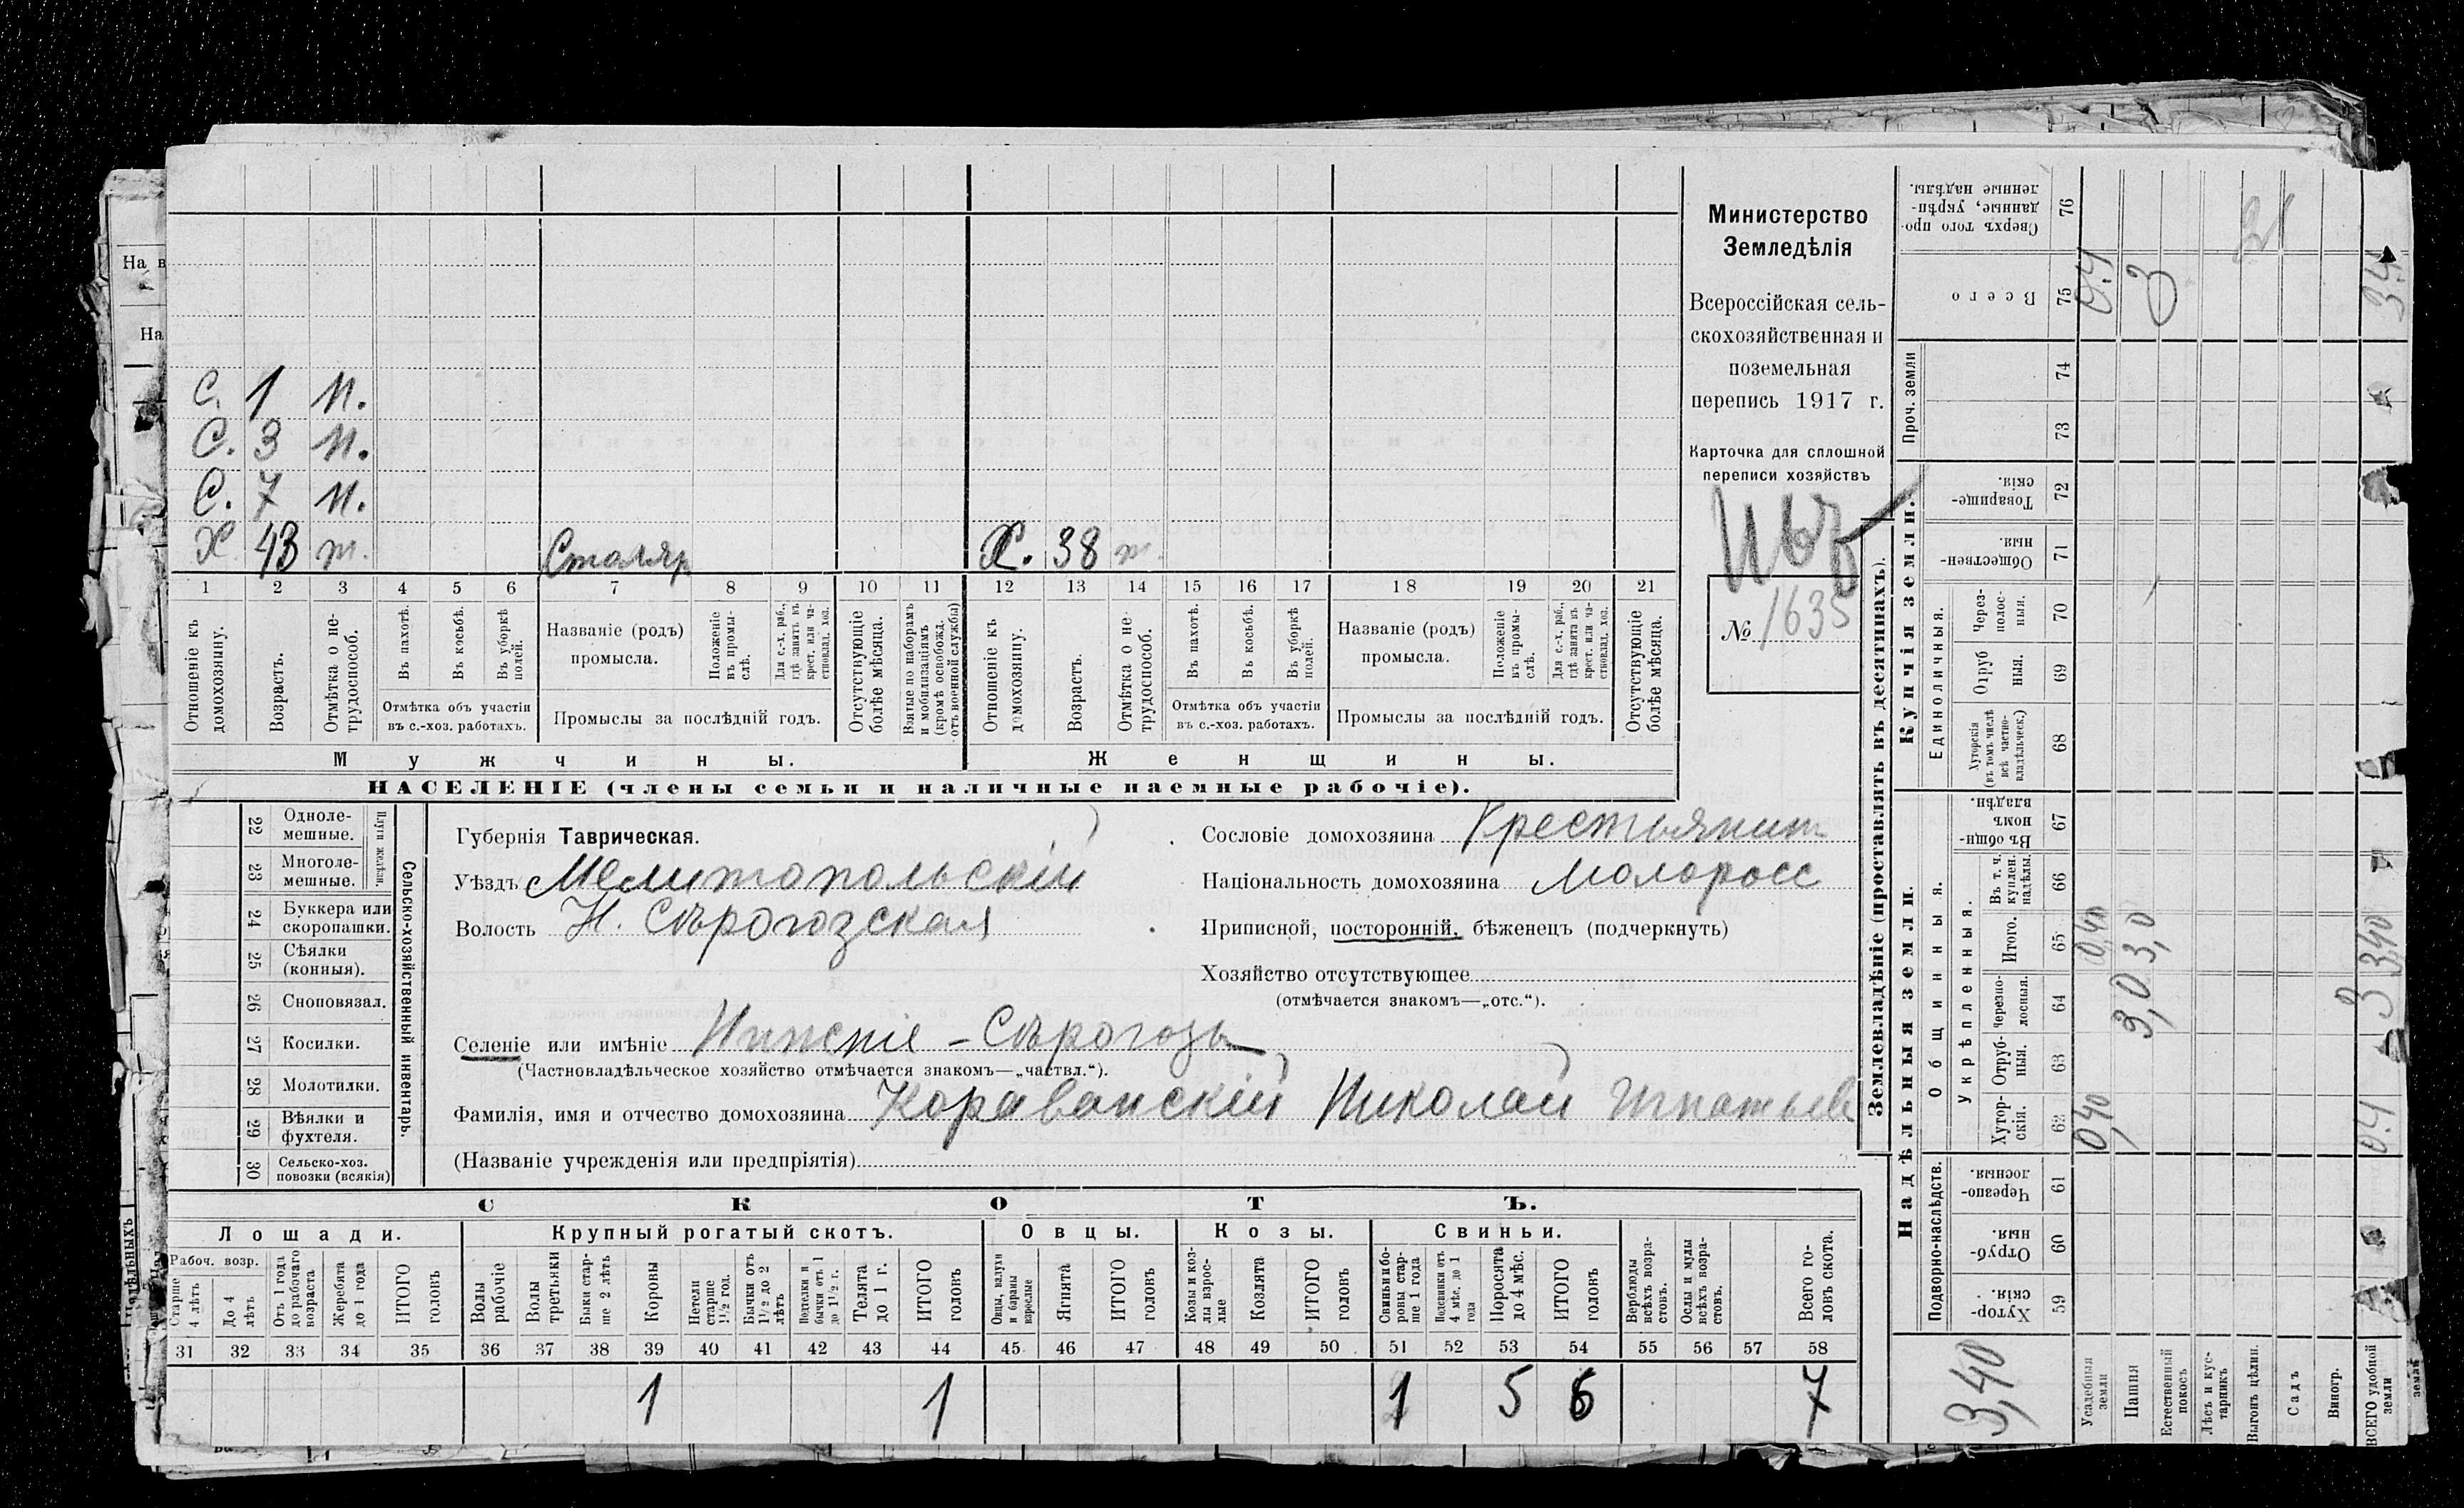 С. 1 н.
С. 3 н.
С. 7 н.
Х 43 т. Столяр Х. 38 т.
1 2 3 4 5 6 7 8 9 10 11 12 13 14 15 16 17 18 19 20 21
Отношеніе къ домохозяину.
Возрастъ.
Отмѣтка о нетрудоспособ.
Въ пахотѣ.
Въ косьбѣ.
Въ уборкѣ полей.
Отмѣтка объ участіи
въ с.-хоз. работахъ.
Названіе (родъ)
промысла.
Положеніе въ промыслѣ.
Для с.-х. раб., гдѣ занятъ въ крест. или частновлад. хоз.
Промыслы за послѣдній годъ.
Отсутствующіе болѣе мѣсяца.
Взятые по наборамъ и мобилизаціямъ (кромѣ освобожд. отъ военной службы)
Отношеніе къ домохозяину.
Возрастъ.
Отмѣтка о нетрудоспособ.
Въ пахотѣ.
Въ косьбѣ.
Въ уборкѣ полей.
Отмѣтка объ участіи
въ с.-хоз. работахъ.
Названіе (родъ)
промысла.
Положеніе въ промыслѣ.
Для с.-х. раб., гдѣ занята въ крест. или частновлад. хоз.
Промыслы за послѣдній годъ.
Отсутствующіе болѣе мѣсяца.
Мужчины. Женщины.
НАСЕЛЕНІЕ (члены семьи и наличные наемные рабочіе).
Министерство
Земледѣлія
Всероссійская сель-
скохозяйственная и
поземельная
перепись 1917 г.
Карточка для сплошной
переписи хозяйствъ
№ 1635
22 Одноле-
мешные.
23 Многоле-
мешные.
Плуги желѣзн.
24 Буккера или
скоропашки.
25 Сѣялки
(конныя).
26 Сноповязал.
27 Косилки.
28 Молотилки.
29 Вѣялки и
фухтеля.
30 Сельско-хоз.
повозки (всякія)
Сельско-хозяйственный инвентарь.
Губернія Таврическая.
Уѣздъ Мелитопольскій
Волость Н. Сѣрогозская
Селеніе или имѣніе Нижніе-Сѣрогозы
(Частновладѣльческое хозяйство отмѣчается знакомъ—„частвл.“).
Фамилія, имя и отчество домохозяина Караванскій Николай Игнатьев
(Названіе учрежденія или предпріятія)
Сословіе домохозяина Крестьянин
Національность домохозяина Малоросс
Приписной, посторонній, бѣженецъ (подчеркнуть)
Хозяйство отсутствующее
(отмѣчается знакомъ—„отс.“).
СКОТЪ.
Лошади. Крупный рогатый скотъ. Овцы. Козы. Свиньи.
Рабоч. возр.
Старше 4 лѣтъ
До 4 лѣтъ
Отъ 1 года до рабочаго возраста
Жеребята до 1 года
ИТОГО головъ
Волы рабочіе
Волы третьяки
Быки старше 2 лѣтъ
Коровы
Нетели старше 1½ год.
Бычки отъ 1½ до 2 лѣтъ
Подтелки и бычки отъ 1 до 1½ г.
Телята до 1 г.
ИТОГО головъ
Овцы, валухи и бараны взрослые
Ягнята
ИТОГО головъ
Козы и козлы взрослые
Козлята
ИТОГО головъ
Свиньи и боровы старше 1 года
Подсвинки отъ 4 мѣс. до 1 года
Поросята до 4 мѣс.
ИТОГО головъ
Верблюды всѣхъ возрастовъ.
Ослы и мулы всѣхъ возрастовъ.
Всего головъ скота.
31 32 33 34 35 36 37 38 39 40 41 42 43 44 45 46 47 48 49 50 51 52 53 54 55 56 57 58
1 1 1 5 6 7
Землевладѣніе (проставлять въ десятинахъ).
Надѣльныя земли. Купчія земли. Проч. земли
Подворно-наслѣдств.
Общинныя.
Укрѣпленныя.
Единоличныя.
Хутор-
скія. 59
Отруб-
ныя. 60
Черезпо-
лосныя 61
Хутор-
скія. 62
Отруб-
ныя. 63
Черезпо-
лосныя. 64
Итого. 65
Въ т. ч. куплен. надѣлы. 66
Въ общин-
номъ
владѣн. 67
Хуторскія (въ томъ числѣ всѣ частновладѣльческ.) 68
Отруб
ныя. 69
Через-
полос-
ныя. 70
Обществен-
ныя. 71
Товарище-
скія. 72
73
74
Всего 75
Сверхъ того про-
данные, укрѣп-
ленные надѣлы. 76
3,40
Усадебныя земли 0,40 0,40 0.4
Пашня 3,0 3,0 3
Естественный покосъ
Лѣсъ и кустарникъ
Выгонъ цѣлин.
Садъ
Виногр.
ВСЕГО удобной земли 0.4 3 3.40 3.4
На в
На